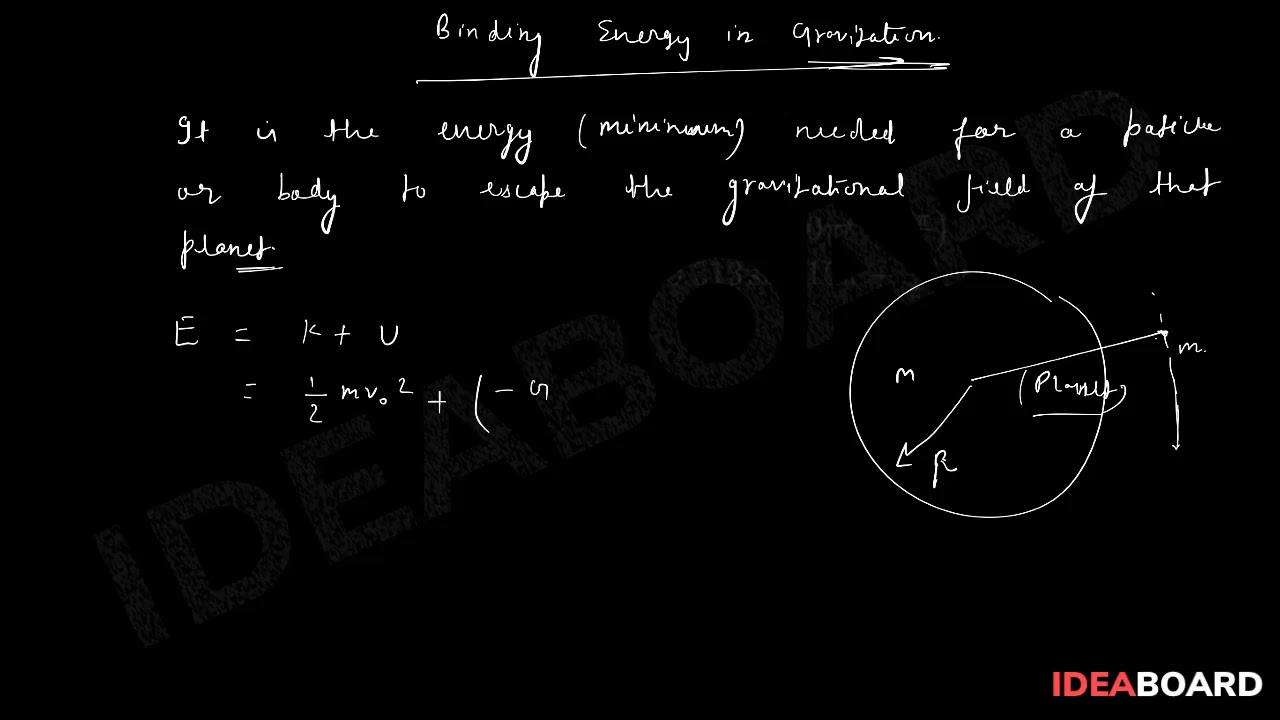 Binding Energy in Gravitation.
It is the energy (minimum) needed for a paticle
or body to escape the gravitational field of that
planet.
E = K + U
= 1/2 mv₀² + (- G
m
(Planet)
R
m.
IDEABOARD
IDEABOARD